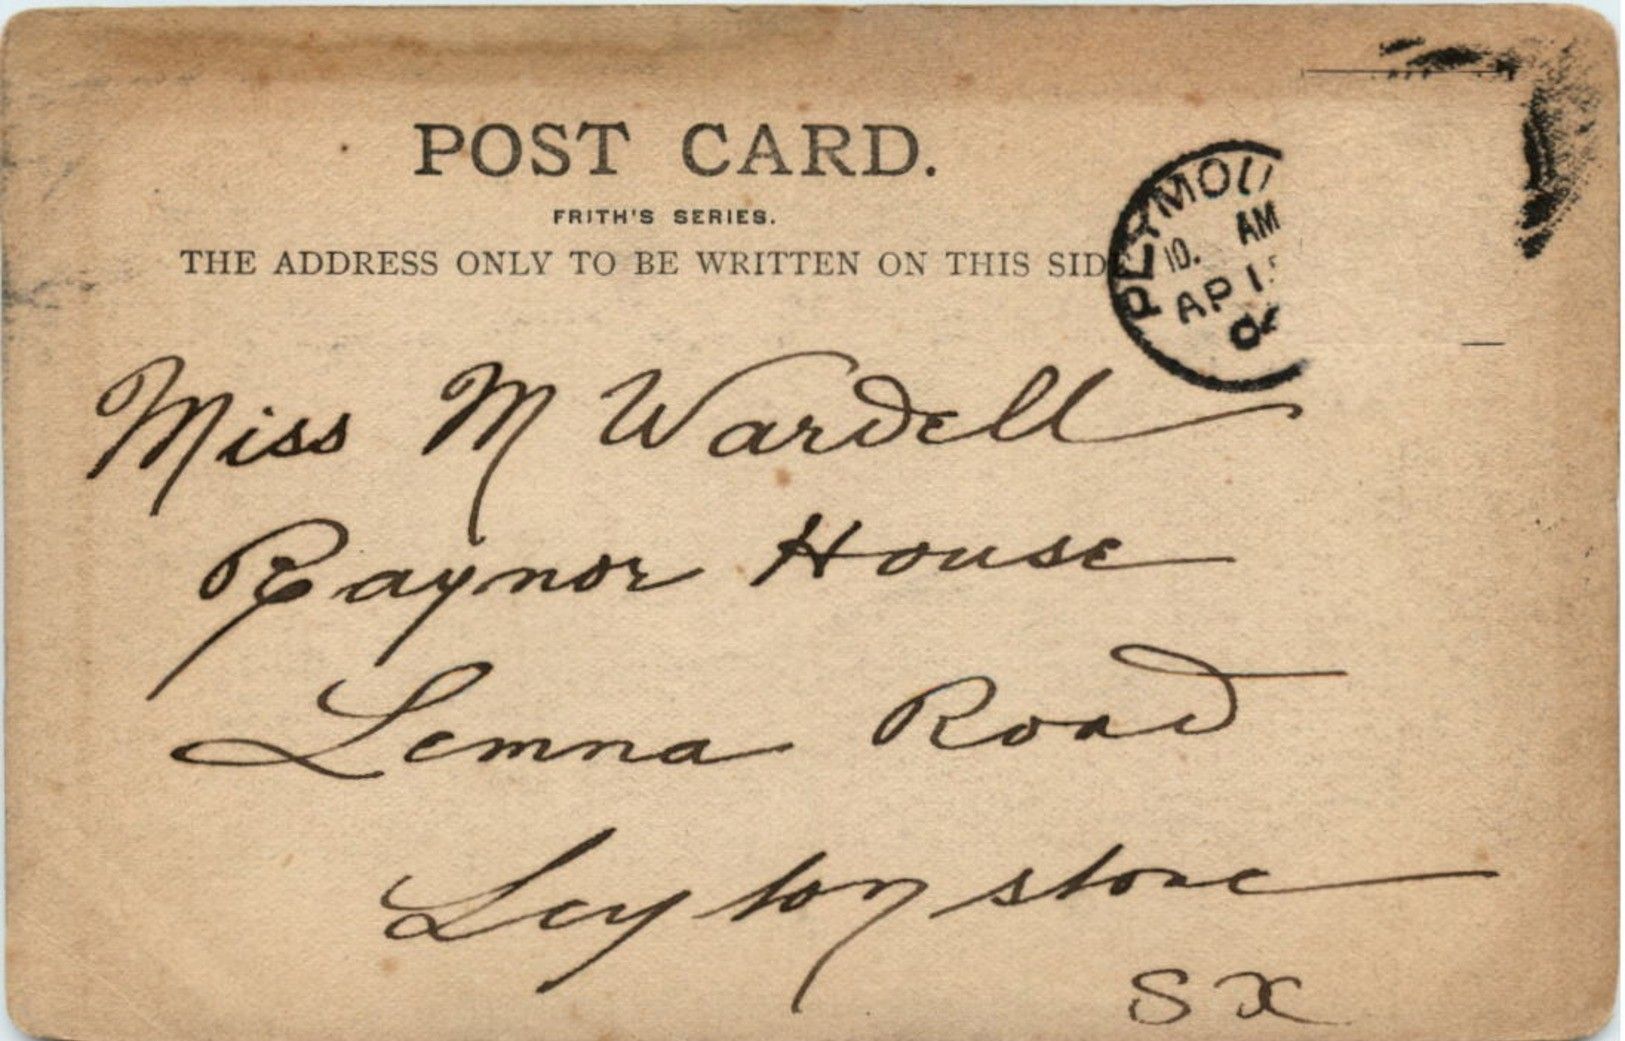 POST CARD.
FRITH'S SERIES.
THE ADDRESS ONLY TO BE WRITTEN ON THIS SID
PLYMOU
10. AM
AP 1
04
Miss M Wardell
Raynor House
Lemna Road
Leytonstone
SX